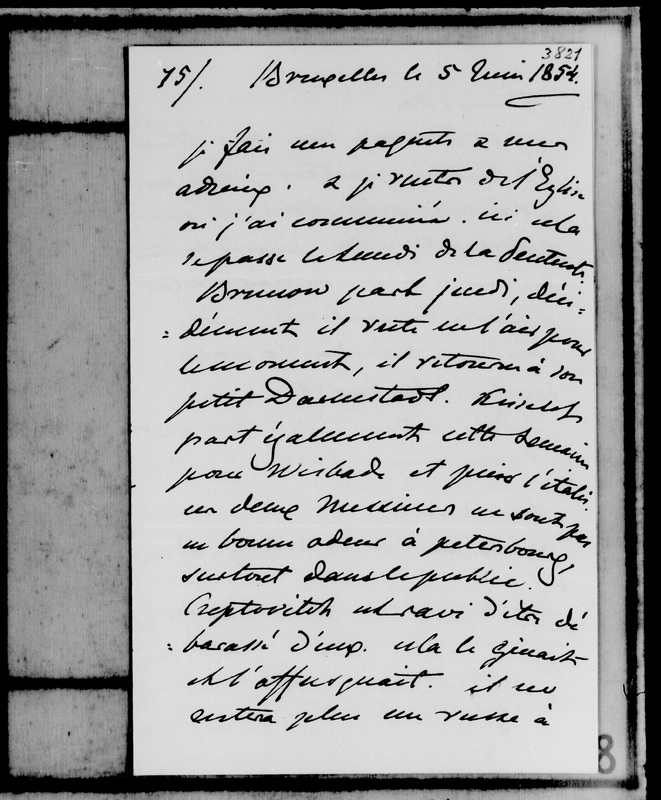 3821
75/. Bruxelles le 5 Juin 1854.
je fais mon paquet à mes
adieux. & je rentre de l'Eglise
où j'ai communié. ici cela
se passe le lundi de la Pentecôte.
Brunow part jeudi, déci-
=dément il reste en l'air pour
le moment, il retourne à son
petit Darmstadt. Kisseleff
part également cette semaine
pour Wisbade et puis l'italie.
ces deux Messieurs ne sont pas
en bonne odeur à petersbourg,
surtout dans le public.
Creptovitch est ravi d'être dé
=barassé d'eux. cela le gênait
et l'offusquait. il ne
restera plus un russe à
8